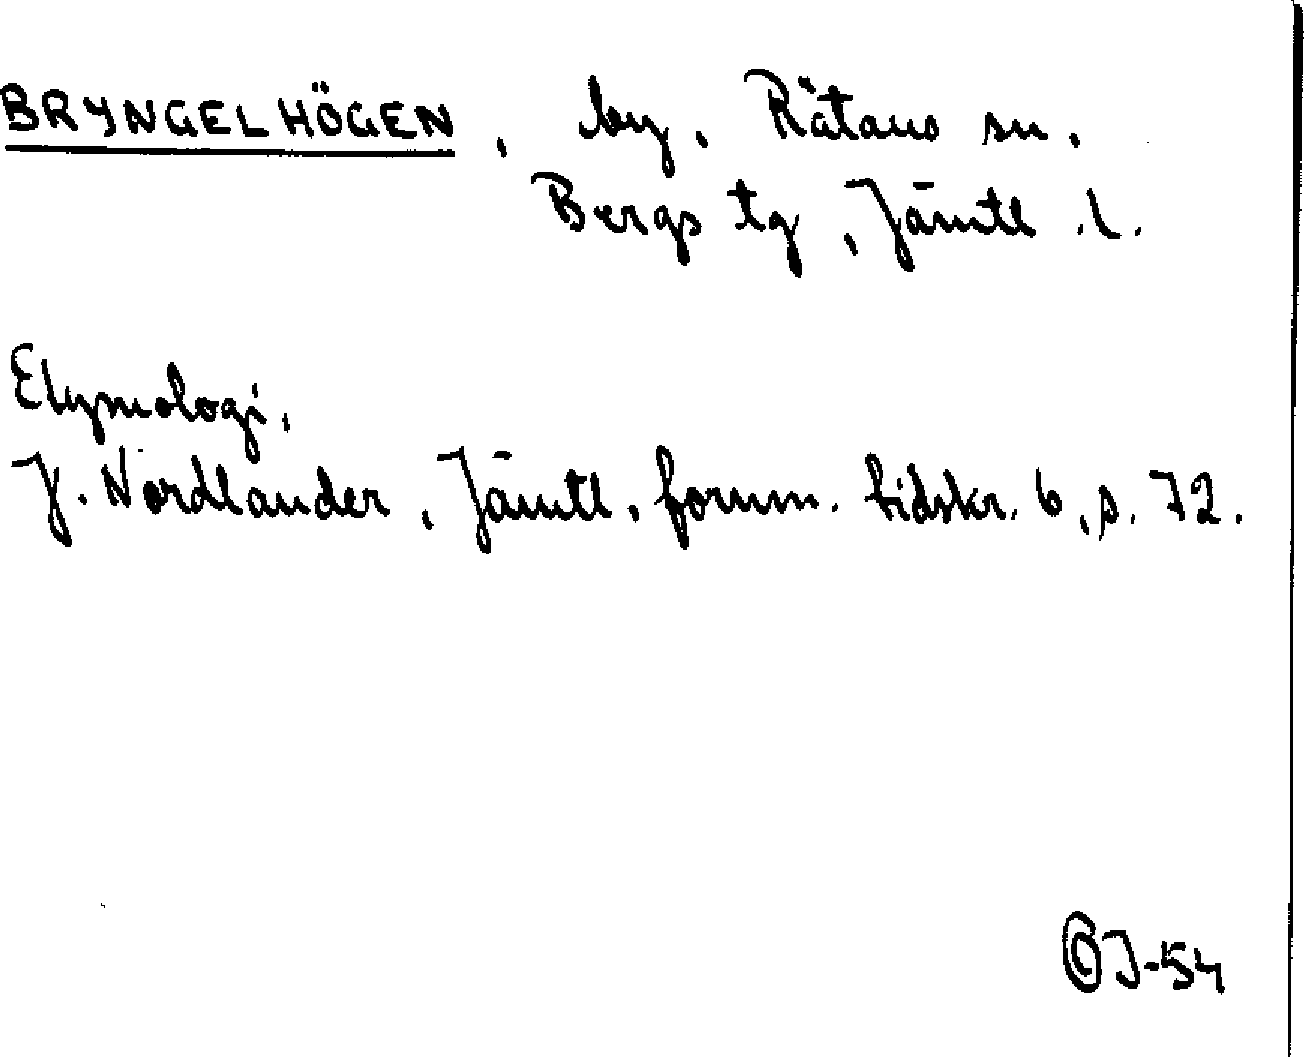 BRYNGELHÖGEN, by, Rätans sn,
Bergs tg, Jämtl. l.
Etymologi,
J. Nordlander, Jämtl. fornm. tidskr. 6, s. 72.
J-54